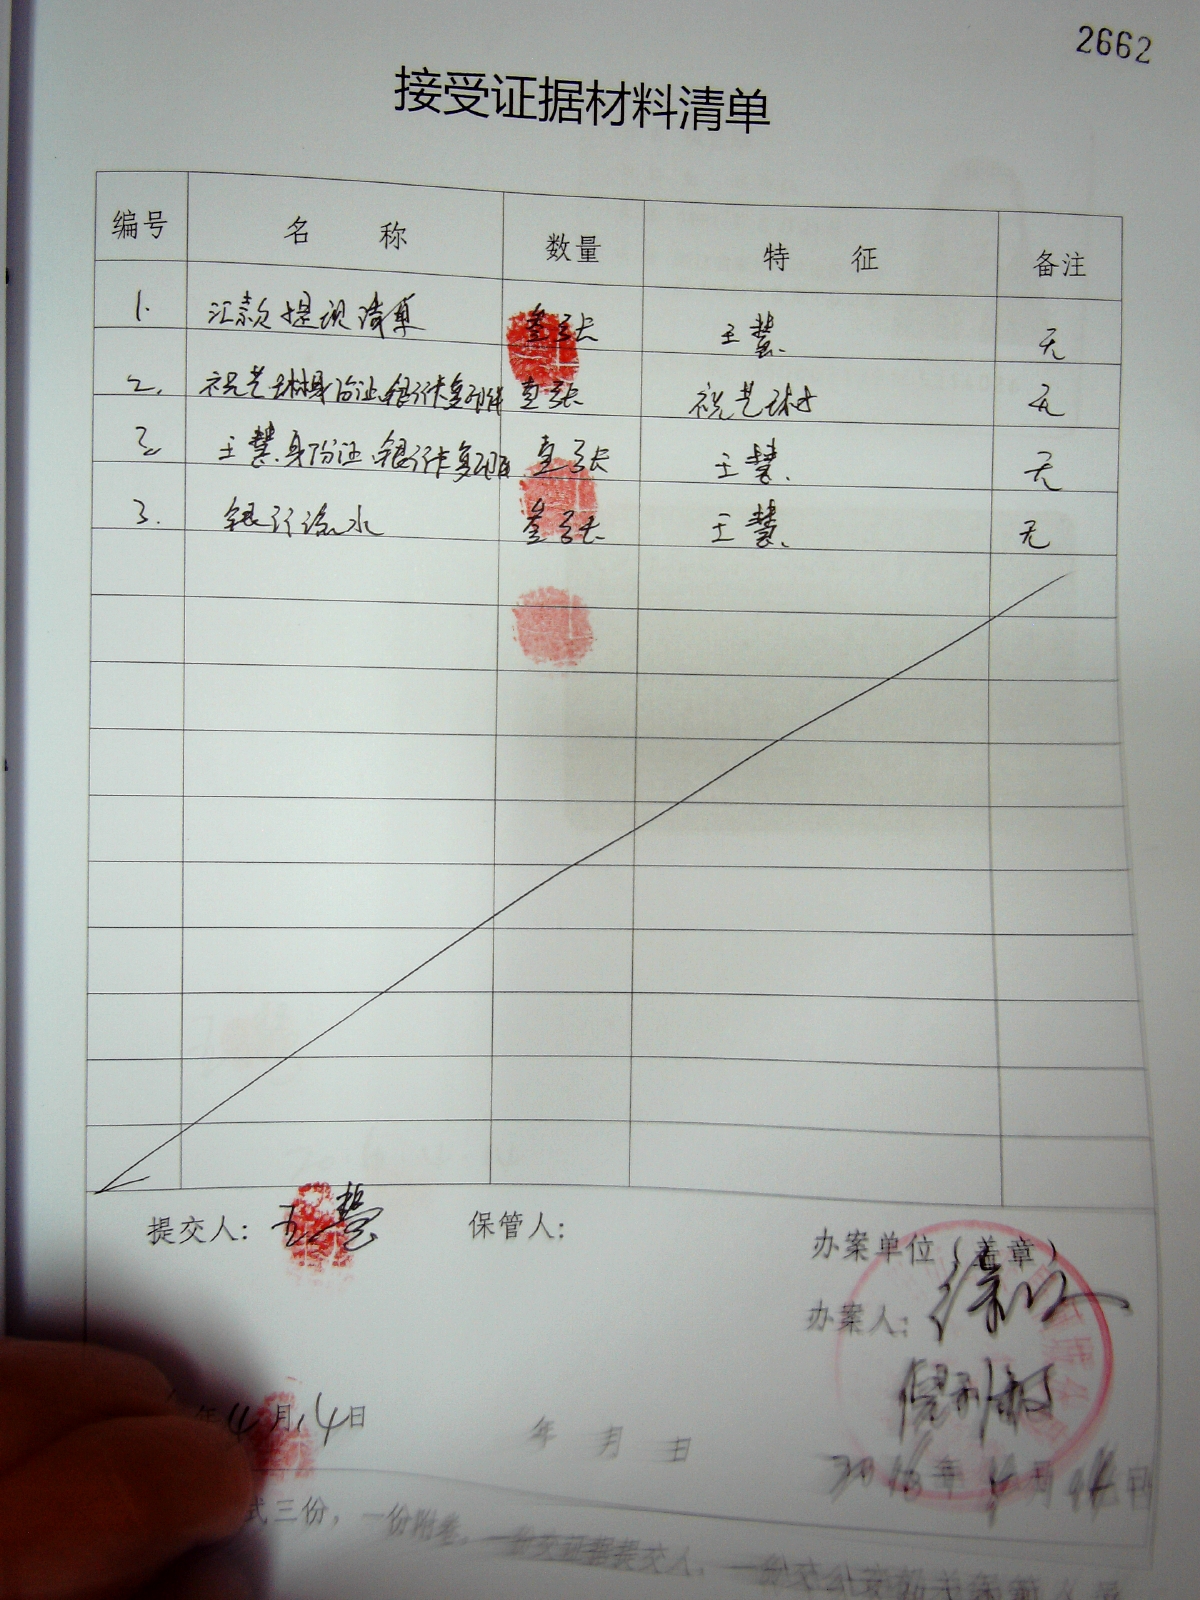 2662
接受证据材料清单
编号 名 称 数量 特 征 备注
1. 汇款提现清单 叁张 王慧 无
2. 祝艺琳身份证、银行卡复印件 壹张 祝艺琳 无
3. 王慧身份证、银行卡复印件 壹张 王慧 无
3. 银行流水 叁张 王慧 无
提交人: 王慧 保管人: 办案单位(盖章)
办案人:
年4月14日 年 月 日 年 月 日
式三份，一份附卷，一份交证据提交人，一份交公安机关保管人员